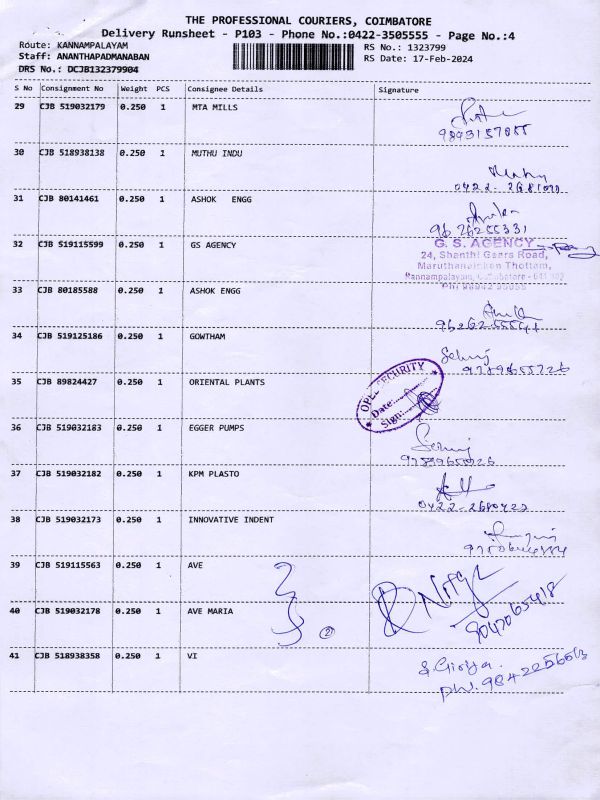 THE PROFESSIONAL COURIERS, COIMBATORE
Delivery Runsheet - P103 - Phone No.:0422-3505555 - Page No.:4
Route: KANNAMPALAYAM RS No.: 1323799
Staff: ANANTHAPADMANABAN RS Date: 17-Feb-2024
DRS No.: DCJB132379904
S No Consignment No Weight PCS Consignee Details Signature
29 CJB 519032179 0.250 1 MTA MILLS
30 CJB 518938138 0.250 1 MUTHU INDU
31 CJB 80141461 0.250 1 ASHOK ENGG
9626255331
32 CJB 519115599 0.250 1 GS AGENCY
G. S. AGENCY
24, Shanthi Gears Road,
Maruthanaicken Thottam,
Kannampalayam, Coimbatore - 641 402
33 CJB 80185588 0.250 1 ASHOK ENGG
34 CJB 519125186 0.250 1 GOWTHAM
9789655726
35 CJB 89824427 0.250 1 ORIENTAL PLANTS
SECURITY
Date:
Sign:
36 CJB 519032183 0.250 1 EGGER PUMPS
37 CJB 519032182 0.250 1 KPM PLASTO
0422-2680422
38 CJB 519032173 0.250 1 INNOVATIVE INDENT
39 CJB 519115563 0.250 1 AVE
40 CJB 519032178 0.250 1 AVE MARIA
2
9047065418
41 CJB 518938358 0.250 1 VI
S. Girija